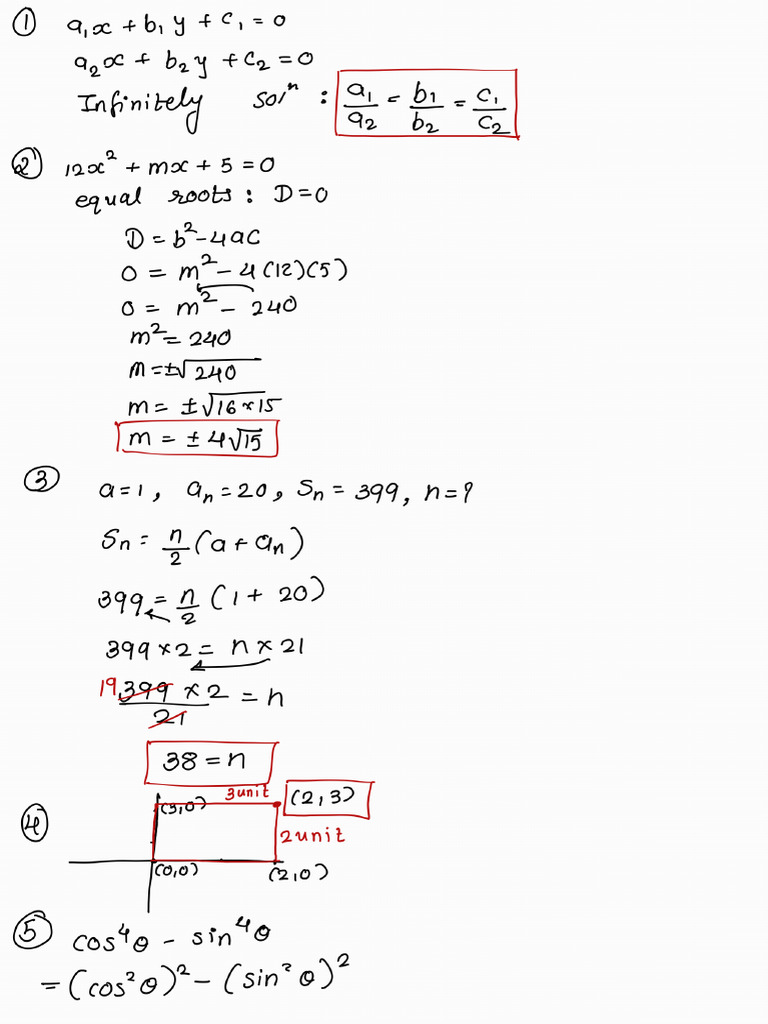 ① a₁x + b₁y + c₁ = 0
a₂x + b₂y + c₂ = 0
Infinitely solⁿ : a₁/a₂ = b₁/b₂ = c₁/c₂
② 12x² + mx + 5 = 0
equal roots : D = 0
D = b² - 4ac
0 = m² - 4(12)(5)
0 = m² - 240
m² = 240
m = ±√240
m = ±√16×15
m = ± 4√15
③ a = 1, aₙ = 20, Sₙ = 399, n = ?
Sₙ = n/2 (a + aₙ)
399 = n/2 (1 + 20)
399 × 2 = n × 21
19 399 × 2 / 21 = n
38 = n
④ (3,0) 3unit (2,3)
2unit
(0,0) (2,0)
⑤ cos⁴θ - sin⁴θ
= (cos²θ)² - (sin²θ)²